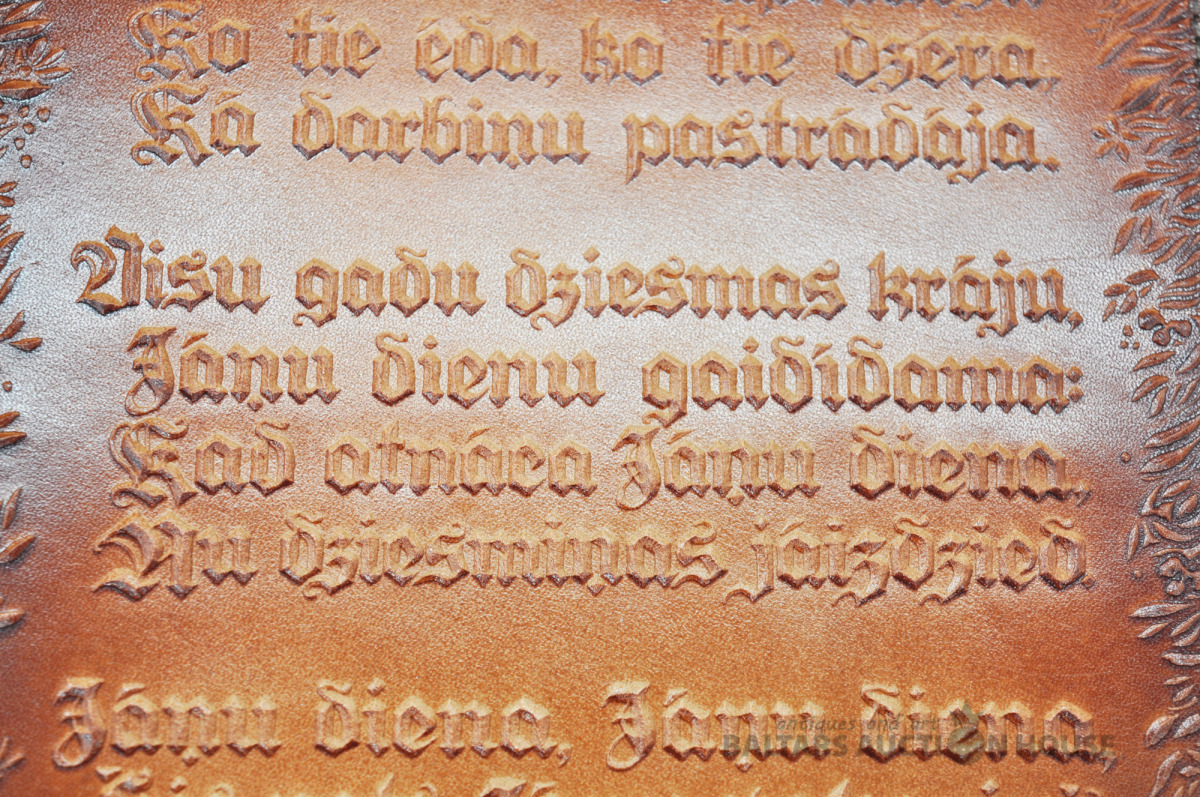 Ko tie éda, ko tie dzéra,
Ká darbiņu pastrádája.
Visu gadu dziesmas kráju,
Jáņu dienu gaidídama:
Kad atnáca Jáņu diena,
Nu dziesmiņas jáizdzied.
Jáņu diena, Jáņu diena,
antiques and art
BALTARS AUCTION HOUSE